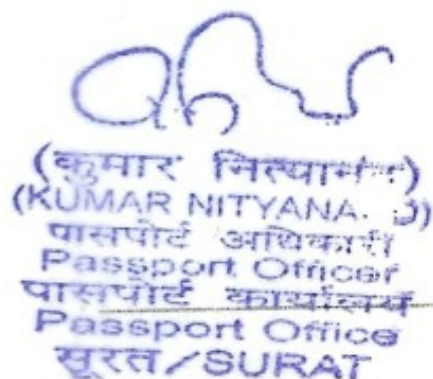 (कुमार
(KUMAR
पासपोर्ट अधिकारी
Passport Officer
पासपोर्ट कार्यालय
Passport Office
सूरत/SURAT